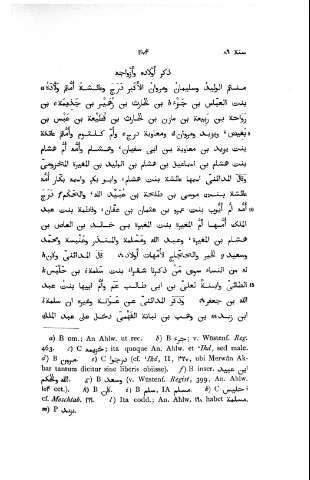 سنة ٨٦
ذكر أولاده وأزواجه
منهم الوليد وسليمان ومروان الأكبر درج وعائشة أمهم ولادة
بنت العباس بن جزء بن الحارث بن زهير بن جذيمة بن
رواحة بن ربيعة بن مازن بن الحارث بن قطيعة بن عبس بن
بغيض ويزيد ومروان ومعاوية درج وأم كلثوم وأمهم عاتكة
بنت يزيد بن معاوية بن ابى سفيان وهشام وأمه أم هشام
بنت هشام بن اسماعيل بن هشام بن الوليد بن المغيرة المخزومى
وقال المدائنى اسمها عائشة بنت هشام وابو بكر واسمه بكار أمه
عائشة بنت موسى بن طلحة بن عبيد الله والحكم درج
أمه أم أيوب بنت عمرو بن عثمان بن عفان وفاطمة بنت عبد
الملك أمها أم المغيرة بنت المغيرة بن خالد بن العاص بن
هشام بن المغيرة وعبد الله ومسلمة والمنذر وعنبسة ومحمد
وسعيد الخير والحجاج لأمهات أولاد قال المدائنى وكان
له من النساء سوى من ذكرنا شقراء بنت سلمة بن حلبس
الطائى وابنة لعلى بن ابى طالب عم وأم ابيها بنت عبد
الله بن جعفر وذكر المدائنى عن عوانة وغيره ان سلمة
ابن زيد بن وهب بن نباتة الفهمى دخل على عبد الملك
a) B om.; An. Ahlw. ut rec. b) B جزى; v. Wüstenf. Reg.
463. c) C خزيمة; ita quoque An. Ahlw. et ʿIkd, sed male.
d) B مروين. e) C درجوا (cf. ʿIkd, II, ٣٢٠, ubi Merwân Akbar
bar tantum dicitur sine liberis obiisse). f) B inser. ابن عبيد
الله والحكم. g) B وسعد (v. Wüstenf. Regist, 399, An. Ahlw.
١٥٣ cet.). h) B كان. i) B سلم, IA مسلم. k) C حليس,
cf. Moschtab. ١٧١. l) Ita codd.; An. Ahlw. ١٩٠ habet مسلمة.
m) P يزيد.